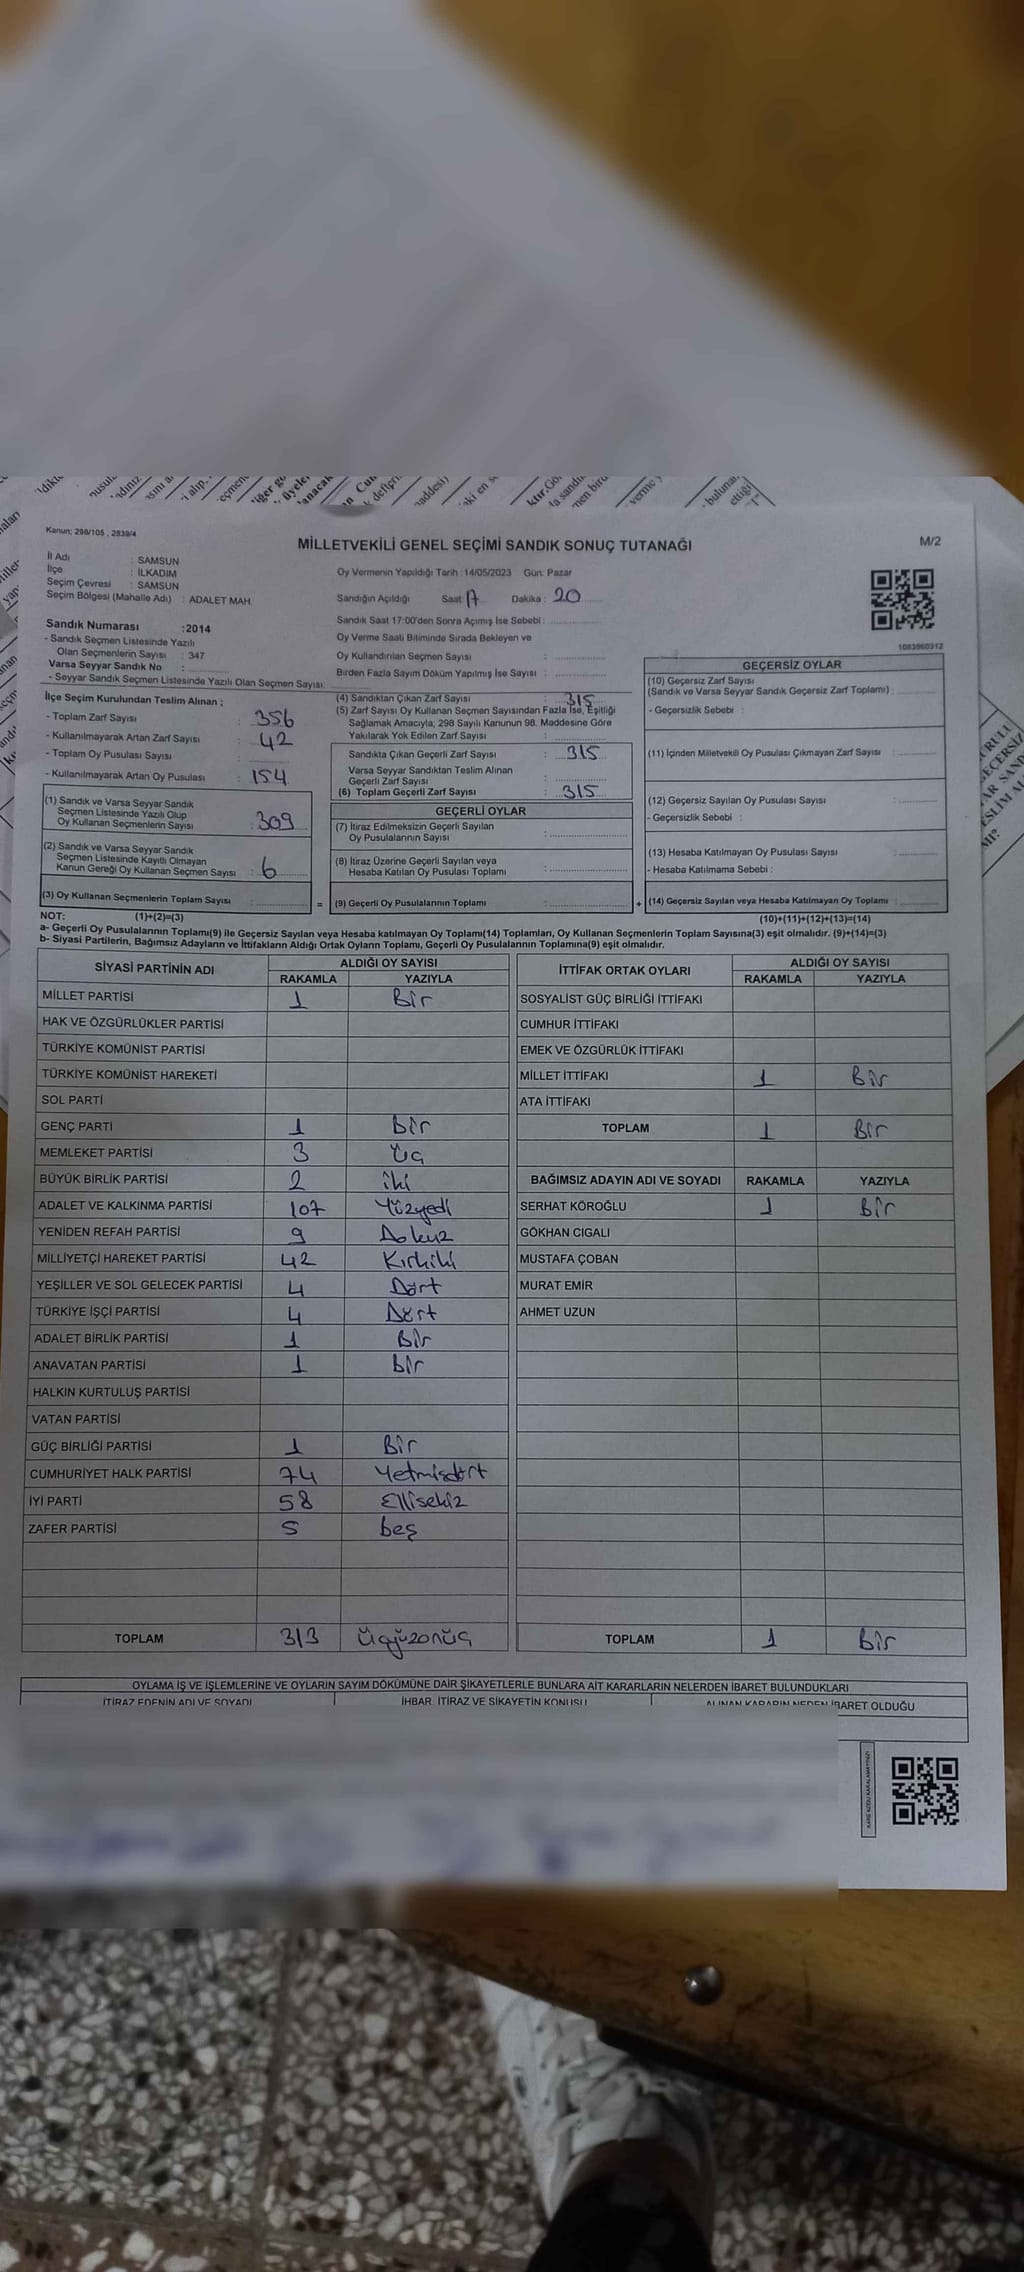 Kanun; 298/105 , 2839/4
MİLLETVEKİLİ GENEL SEÇİMİ SANDIK SONUÇ TUTANAĞI
M/2
İl Adı : SAMSUN
İlçe : İLKADIM
Seçim Çevresi : SAMSUN
Seçim Bölgesi (Mahalle Adı) : ADALET MAH.
Oy Vermenin Yapıldığı Tarih :14/05/2023 Gün: Pazar
Sandığın Açıldığı Saat: 17 Dakika : 20
Sandık Saat 17:00'den Sonra Açımış İse Sebebi:
Oy Verme Saati Bitiminde Sırada Bekleyen ve
Oy Kullandırılan Seçmen Sayısı :
Birden Fazla Sayım Döküm Yapılmış İse Sayısı :
1083060312
Sandık Numarası :2014
- Sandık Seçmen Listesinde Yazılı
Olan Seçmenlerin Sayısı : 347
Varsa Seyyar Sandık No :
- Seyyar Sandık Seçmen Listesinde Yazılı Olan Seçmen Sayısı:
İlçe Seçim Kurulundan Teslim Alınan ;
- Toplam Zarf Sayısı : 356
- Kullanılmayarak Artan Zarf Sayısı : 42
- Toplam Oy Pusulası Sayısı :
- Kullanılmayarak Artan Oy Pusulası : 154
(1) Sandık ve Varsa Seyyar Sandık
Seçmen Listesinde Yazılı Olup
Oy Kullanan Seçmenlerin Sayısı : 309
(2) Sandık ve Varsa Seyyar Sandık
Seçmen Listesinde Kayıtlı Olmayan
Kanun Gereği Oy Kullanan Seçmen Sayısı : 6
(3) Oy Kullanan Seçmenlerin Toplam Sayısı :
(4) Sandıktan Çıkan Zarf Sayısı : 315
(5) Zarf Sayısı Oy Kullanan Seçmen Sayısından Fazla İse, Eşitliği
Sağlamak Amacıyla, 298 Sayılı Kanunun 98. Maddesine Göre
Yakılarak Yok Edilen Zarf Sayısı :
Sandıkta Çıkan Geçerli Zarf Sayısı : 315
Varsa Seyyar Sandıktan Teslim Alınan
Geçerli Zarf Sayısı :
(6) Toplam Geçerli Zarf Sayısı : 315
GEÇERLİ OYLAR
(7) İtiraz Edilmeksizin Geçerli Sayılan
Oy Pusulalarının Sayısı :
(8) İtiraz Üzerine Geçerli Sayılan veya
Hesaba Katılan Oy Pusulası Toplamı :
= (9) Geçerli Oy Pusulalarının Toplamı :
GEÇERSİZ OYLAR
(10) Geçersiz Zarf Sayısı
(Sandık ve Varsa Seyyar Sandık Geçersiz Zarf Toplamı) :
- Geçersizlik Sebebi :
(11) İçinden Milletvekili Oy Pusulası Çıkmayan Zarf Sayısı :
(12) Geçersiz Sayılan Oy Pusulası Sayısı :
- Geçersizlik Sebebi :
(13) Hesaba Katılmayan Oy Pusulası Sayısı :
- Hesaba Katılmama Sebebi :
+ (14) Geçersiz Sayılan veya Hesaba Katılmayan Oy Toplamı :
NOT: (1)+(2)=(3) (10)+(11)+(12)+(13)=(14)
a- Geçerli Oy Pusulalarının Toplamı(9) ile Geçersiz Sayılan veya Hesaba katılmayan Oy Toplamı(14) Toplamları, Oy Kullanan Seçmenlerin Toplam Sayısına(3) eşit olmalıdır. (9)+(14)=(3)
b- Siyasi Partilerin, Bağımsız Adayların ve İttifakların Aldığı Ortak Oyların Toplamı, Geçerli Oy Pusulalarının Toplamına(9) eşit olmalıdır.
SİYASİ PARTİNİN ADI ALDIĞI OY SAYISI
RAKAMLA YAZIYLA
MİLLET PARTİSİ 1 Bir
HAK VE ÖZGÜRLÜKLER PARTİSİ
TÜRKİYE KOMÜNİST PARTİSİ
TÜRKİYE KOMÜNİST HAREKETİ
SOL PARTİ
GENÇ PARTİ 1 Bir
MEMLEKET PARTİSİ 3 Üç
BÜYÜK BİRLİK PARTİSİ 2 iki
ADALET VE KALKINMA PARTİSİ 107 Yüzyedi
YENİDEN REFAH PARTİSİ 9 Dokuz
MİLLİYETÇİ HAREKET PARTİSİ 42 Kırkiki
YEŞİLLER VE SOL GELECEK PARTİSİ 4 Dört
TÜRKİYE İŞÇİ PARTİSİ 4 Dört
ADALET BİRLİK PARTİSİ 1 Bir
ANAVATAN PARTİSİ 1 bir
HALKIN KURTULUŞ PARTİSİ
VATAN PARTİSİ
GÜÇ BİRLİĞİ PARTİSİ 1 Bir
CUMHURİYET HALK PARTİSİ 74 Yetmişdört
İYİ PARTİ 58 Ellisekiz
ZAFER PARTİSİ 5 beş
TOPLAM 313 Üçyüzonüç
İTTİFAK ORTAK OYLARI ALDIĞI OY SAYISI
RAKAMLA YAZIYLA
SOSYALİST GÜÇ BİRLİĞİ İTTİFAKI
CUMHUR İTTİFAKI
EMEK VE ÖZGÜRLÜK İTTİFAKI
MİLLET İTTİFAKI 1 Bir
ATA İTTİFAKI
TOPLAM 1 Bir
BAĞIMSIZ ADAYIN ADI VE SOYADI RAKAMLA YAZIYLA
SERHAT KÖROĞLU 1 Bir
GÖKHAN CIGALI
MUSTAFA ÇOBAN
MURAT EMİR
AHMET UZUN
TOPLAM 1 Bir
OYLAMA İŞ VE İŞLEMLERİNE VE OYLARIN SAYIM DÖKÜMÜNE DAİR ŞİKAYETLERLE BUNLARA AİT KARARLARIN NELERDEN İBARET BULUNDUKLARI
İTİRAZ EDENİN ADI VE SOYADI İHBAR, İTİRAZ VE ŞİKAYETİN KONUSU ALINAN KARARIN NEDEN İBARET OLDUĞU